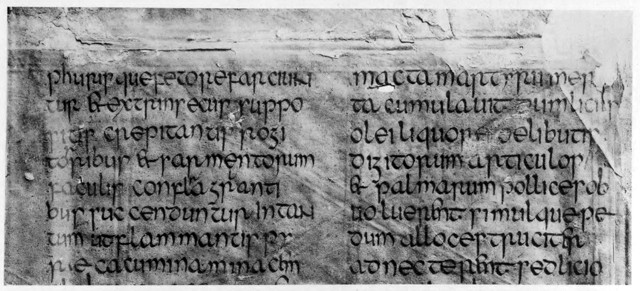 phurisque petore farciun
tur & extrinsecus suppo
sitis crepitantis rogi
torribus & sarmentorum
faculis conflagranti
bus succenduntur in tan
tum ut flammantis py
re cacumina
macta martyrum mer
ta cumulauit dum licinis
olei liquore delibutis
digitorum articulos
& palmarum pollices ob
uoluerunt simulque pe
dum alloces truciter
adnecterunt sed licio